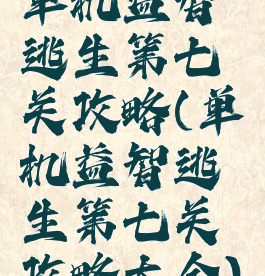 单机益智
逃生第七
关攻略(单
机益智逃
生第七关
攻略大全)